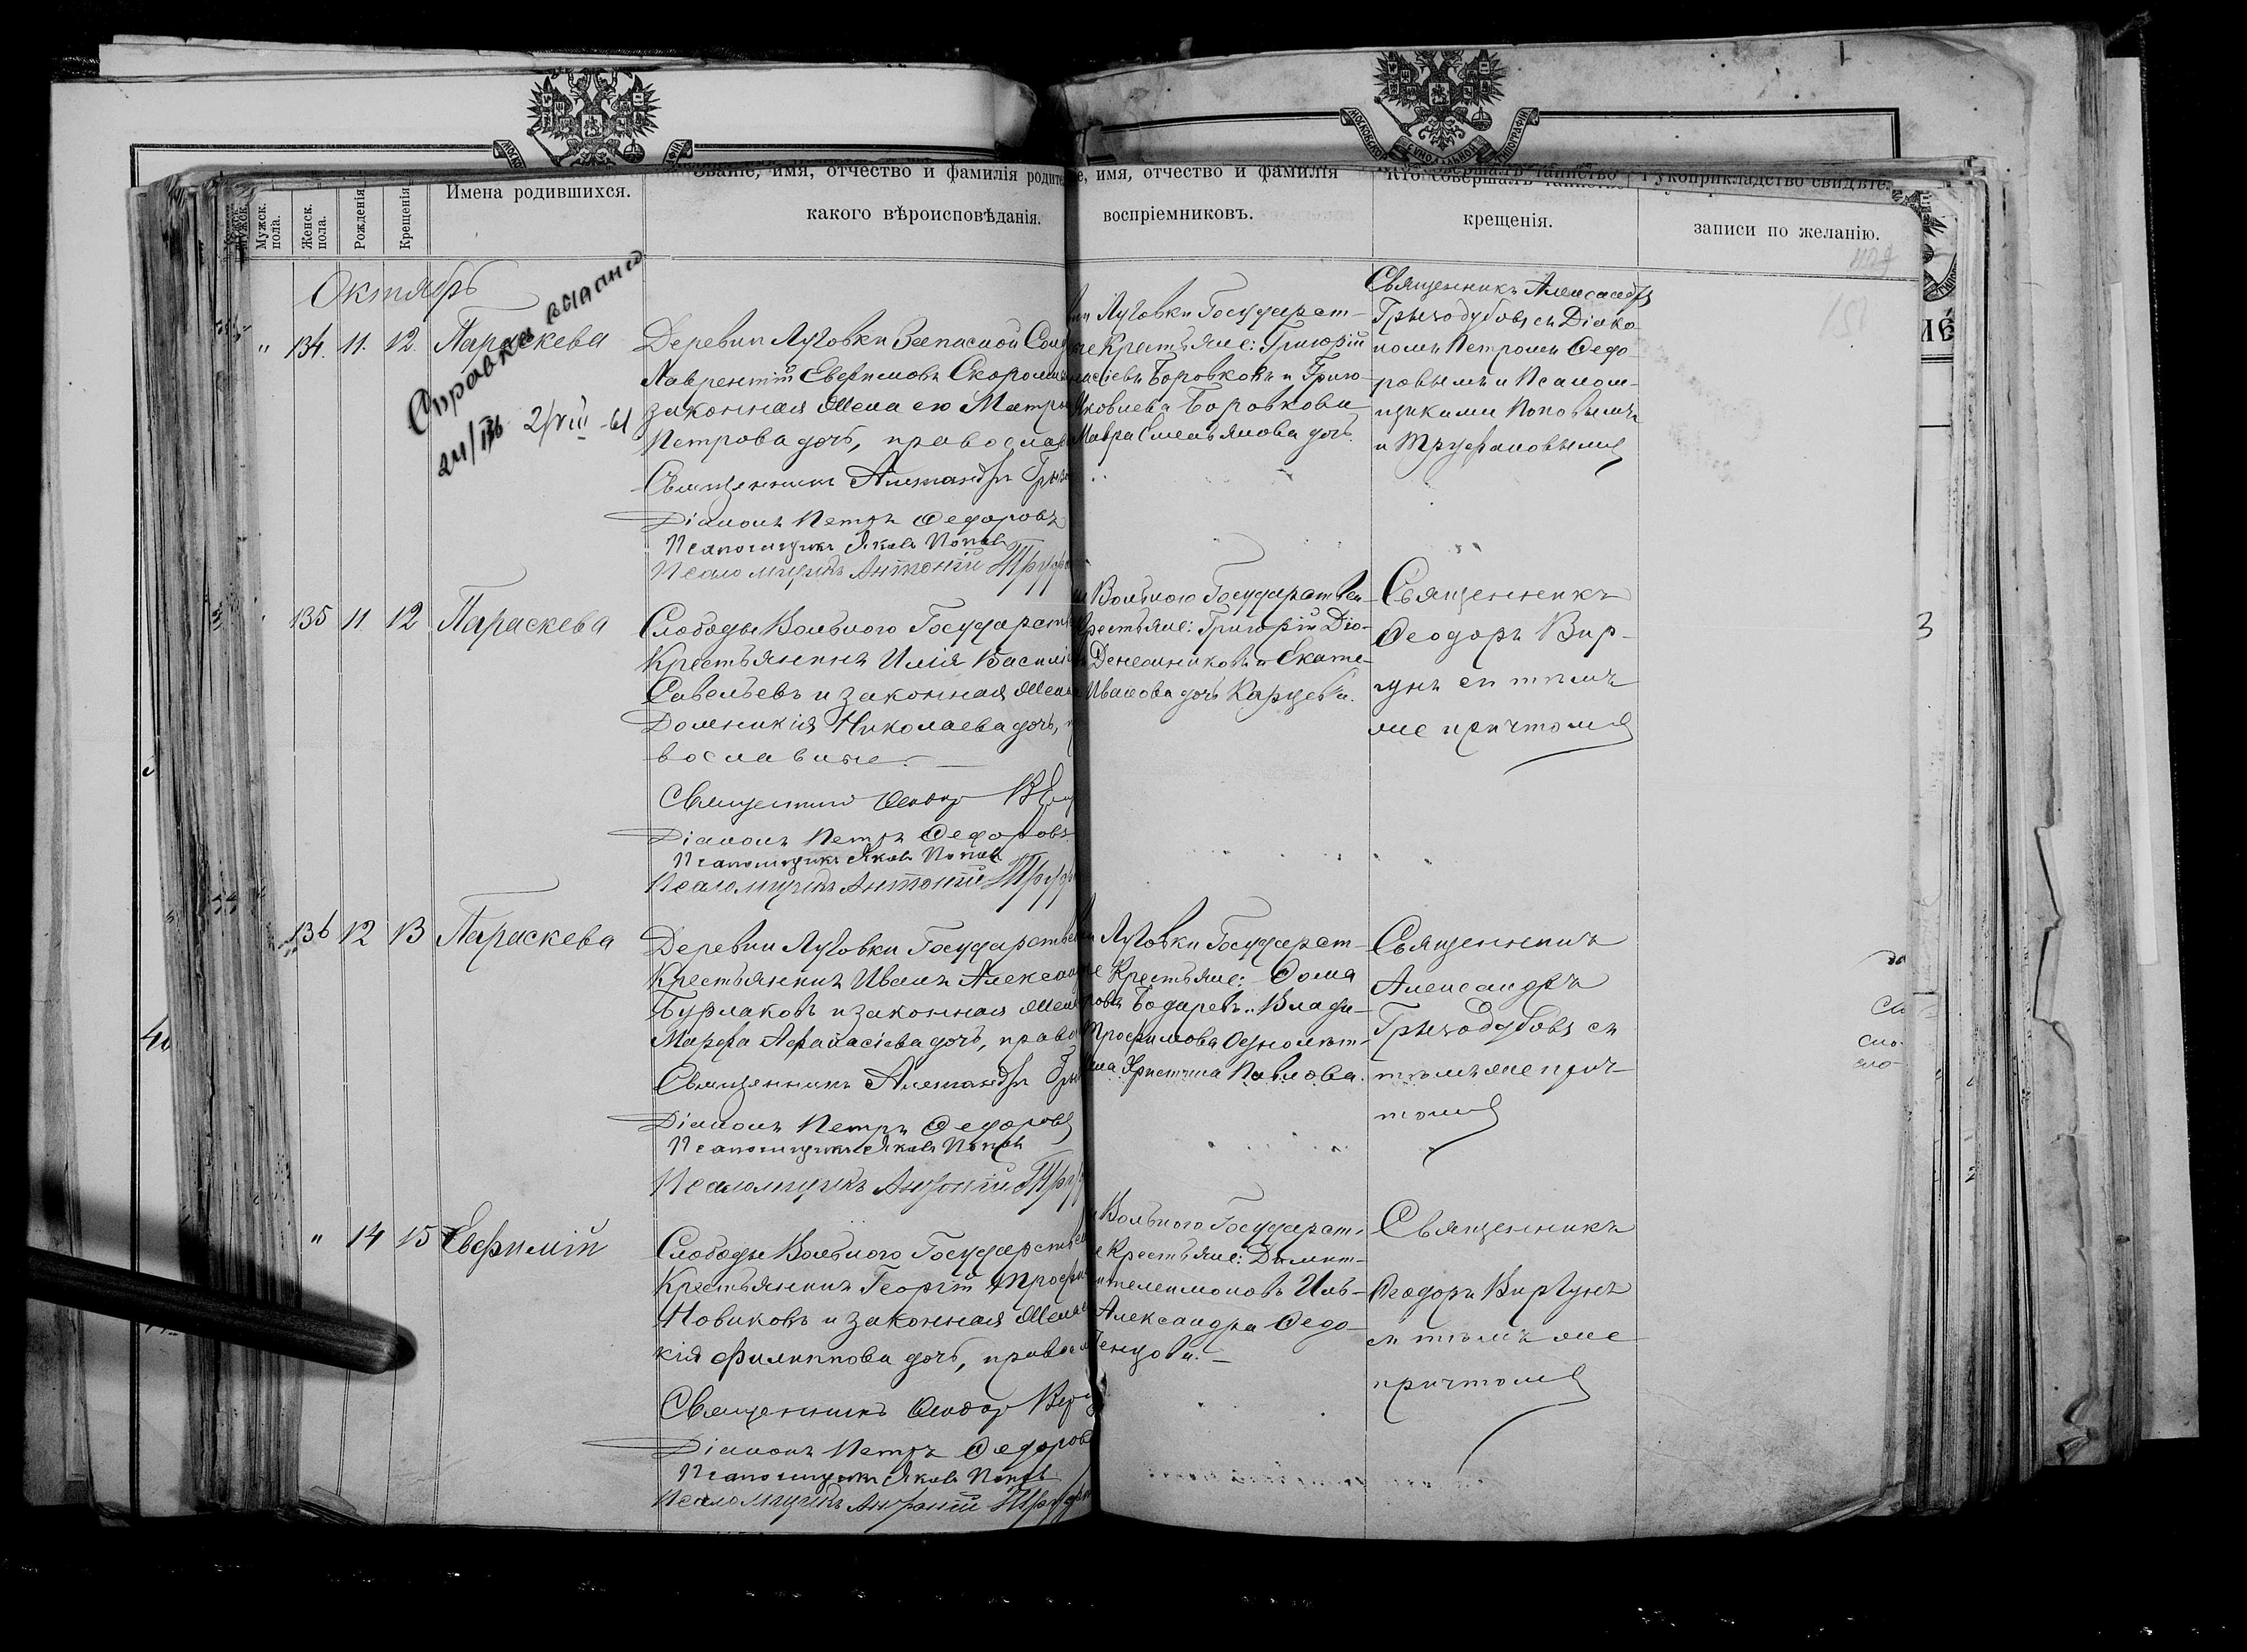 МОСКОВСКОЙ СѴНОДАЛЬНОЙ ТИПОГРАФІИ
Мужск. пола.
Женск. пола.
Рожденія
Крещенія
Имена родившихся.
Званіе, имя, отчество и фамилія родите
какого вѣроисповѣданія.
е, имя, отчество и фамилія
воспріемниковъ.
Кто совершалъ таинство
крещенія.
Рукоприкладство свидѣте
записи по желанію.
Октябрь
Справка выдана
2/VIII-61
" 134. 11. 12. Параскева
Деревни Луговки Запасной Солд
Лаврентій Евфимовъ
законная жена его Матр
Петрова дочь, православ
Священникъ Александръ
Діаконъ Петръ Ѳедоровъ
Псаломщикъ Яковъ Поповъ
Псаломщикъ Антоній Труф
ни Луговки Государст-
ые Крестьяне: Григорій
насіевъ Боровковъ и Григо-
Яковлева Боровкова
Мавра Емельянова дочь.
Священникъ Александръ
Грызодубовъ съ Діако-
номъ Петромъ Ѳедо-
ровымъ и Псалом-
щиками Поповымъ
и Труфановымъ
135 11 12 Параскева
Слободы Вольного Государств
Крестьянинъ Илія Василі
Савельевъ и законная жена
Домникія Николаева дочь, п
вославные.
Священникъ Ѳеодоръ
Діаконъ Петръ Ѳедоровъ
Псаломщикъ Яковъ Поповъ
Псаломщикъ Антоній Труф
Вольного Государствен-
Крестьяне: Григорій Діо-
и Екате-
Иванова дочь Карцева.
Священникъ
Ѳеодоръ Вир-
гунъ съ тѣмъ
же причтомъ
136 12 13 Параскева
Деревни Луговки Государствен
Крестьянинъ Иванъ Александ
Бурлаковъ и законная жена
Марфа Афанасіева дочь, право
Священникъ Александръ
Діаконъ Петръ Ѳедоровъ
Псаломщикъ Яковъ Поповъ
Псаломщикъ Антоній Труф
Луговки Государст-
е Крестьяне: Ѳома
Бодаревъ и Влади-
Трофимова
жена Христина Павлова.
Священникъ
Александръ
Грызодубовъ съ
тѣмъ же прич-
томъ
" 14 15 Евфимій
Слободы Вольного Государствен
Крестьянинъ Георгій Трофи
Новиковъ и законная жена
кія Филиппова дочь, правосл
Священникъ Ѳеодоръ
Діаконъ Петръ Ѳедоровъ
Псаломщикъ Яковъ Поповъ
Псаломщикъ Антоній Труфан
Вольного Государст-
е Крестьяне: Димит-
нтелеимоновъ Иль-
Александра Ѳедо-
Священникъ
Ѳеодоръ Виргунъ
съ тѣмъ же
причтомъ
3